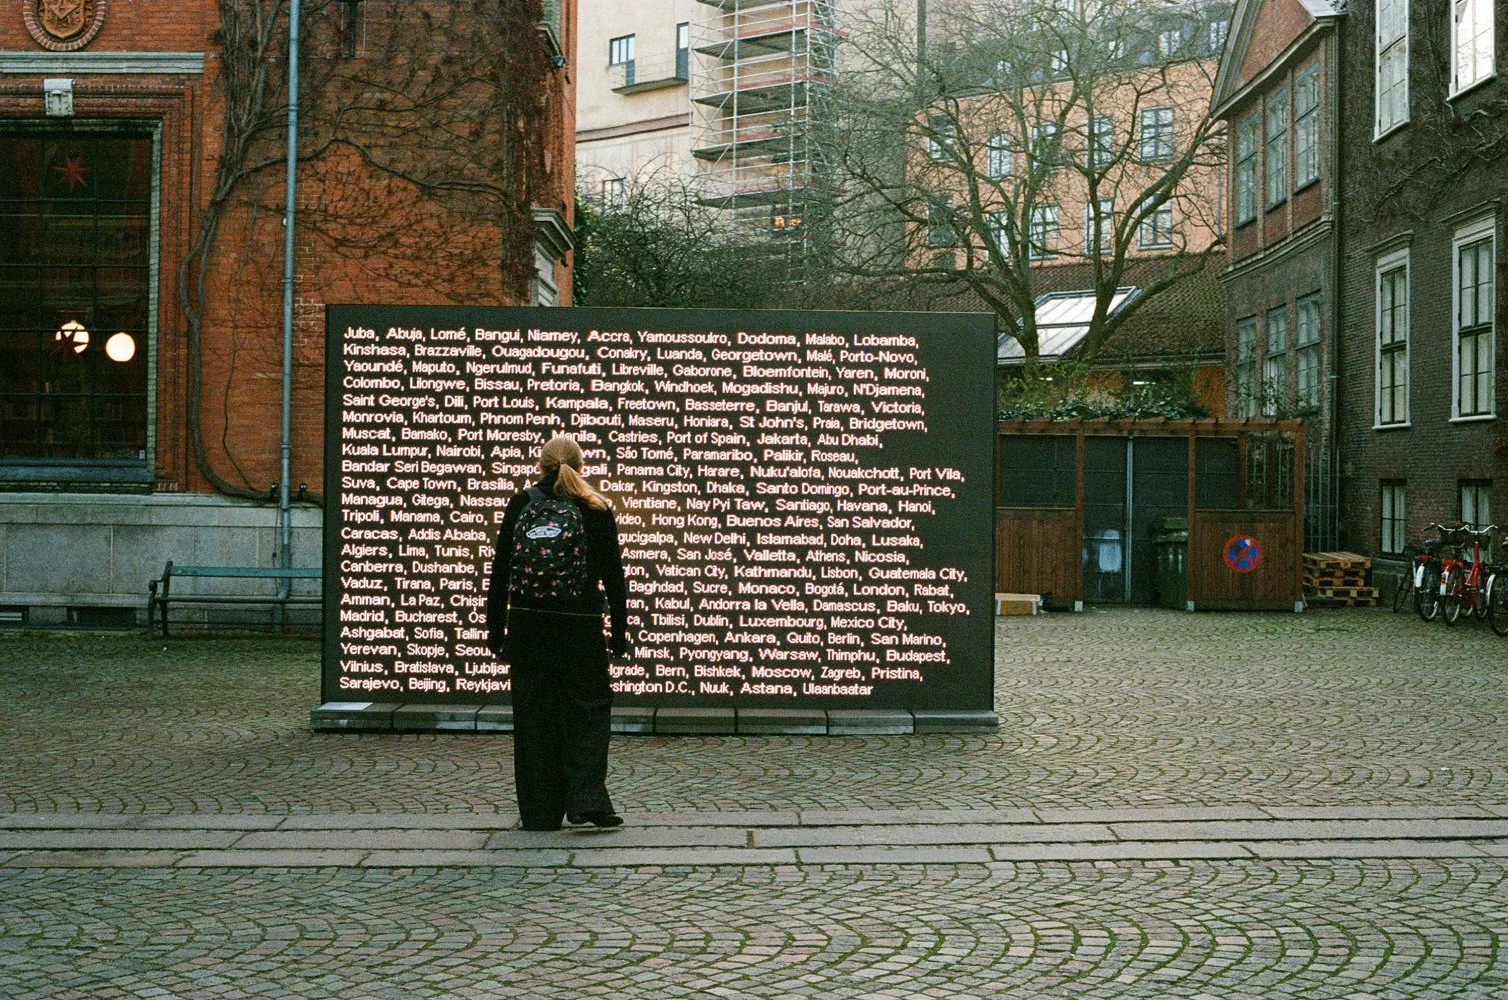 Juba, Abuja, Lomé, Bangui, Niamey, Accra, Yamoussoukro, Dodoma, Malabo, Lobamba,
Kinshasa, Brazzaville, Ouagadougou, Conakry, Luanda, Georgetown, Malé, Porto-Novo,
Yaoundé, Maputo, Ngerulmud, Funafuti, Libreville, Gaborone, Bloemfontein, Yaren, Moroni,
Colombo, Lilongwe, Bissau, Pretoria, Bangkok, Windhoek, Mogadishu, Majuro, N'Djamena,
Saint George's, Dili, Port Louis, Kampala, Freetown, Basseterre, Banjul, Tarawa, Victoria,
Monrovia, Khartoum, Phnom Penh, Djibouti, Maseru, Honiara, St John's, Praia, Bridgetown,
Muscat, Bamako, Port Moresby, Manila, Castries, Port of Spain, Jakarta, Abu Dhabi,
Kuala Lumpur, Nairobi, Apia, Ki wn, São Tomé, Paramaribo, Palikir, Roseau,
Bandar Seri Begawan, Singapo gali, Panama City, Harare, Nuku'alofa, Nouakchott, Port Vila,
Suva, Cape Town, Brasília, Dakar, Kingston, Dhaka, Santo Domingo, Port-au-Prince,
Managua, Gitega, Nassau Vientiane, Nay Pyi Taw, Santiago, Havana, Hanoi,
Tripoli, Manama, Cairo, B video, Hong Kong, Buenos Aires, San Salvador,
Caracas, Addis Ababa, gucigalpa, New Delhi, Islamabad, Doha, Lusaka,
Algiers, Lima, Tunis, Riy Asmera, San José, Valletta, Athens, Nicosia,
Canberra, Dushanbe, E gton, Vatican City, Kathmandu, Lisbon, Guatemala City,
Vaduz, Tirana, Paris, B Baghdad, Sucre, Monaco, Bogotá, London, Rabat,
Amman, La Paz, Chișin ran, Kabul, Andorra la Vella, Damascus, Baku, Tokyo,
Madrid, Bucharest, Os ca, Tbilisi, Dublin, Luxembourg, Mexico City,
Ashgabat, Sofia, Tallinn Copenhagen, Ankara, Quito, Berlin, San Marino,
Yerevan, Skopje, Seoul, Minsk, Pyongyang, Warsaw, Thimphu, Budapest,
Vilnius, Bratislava, Ljubljan lgrade, Bern, Bishkek, Moscow, Zagreb, Pristina,
Sarajevo, Beijing, Reykjavi shington D.C., Nuuk, Astana, Ulaanbaatar